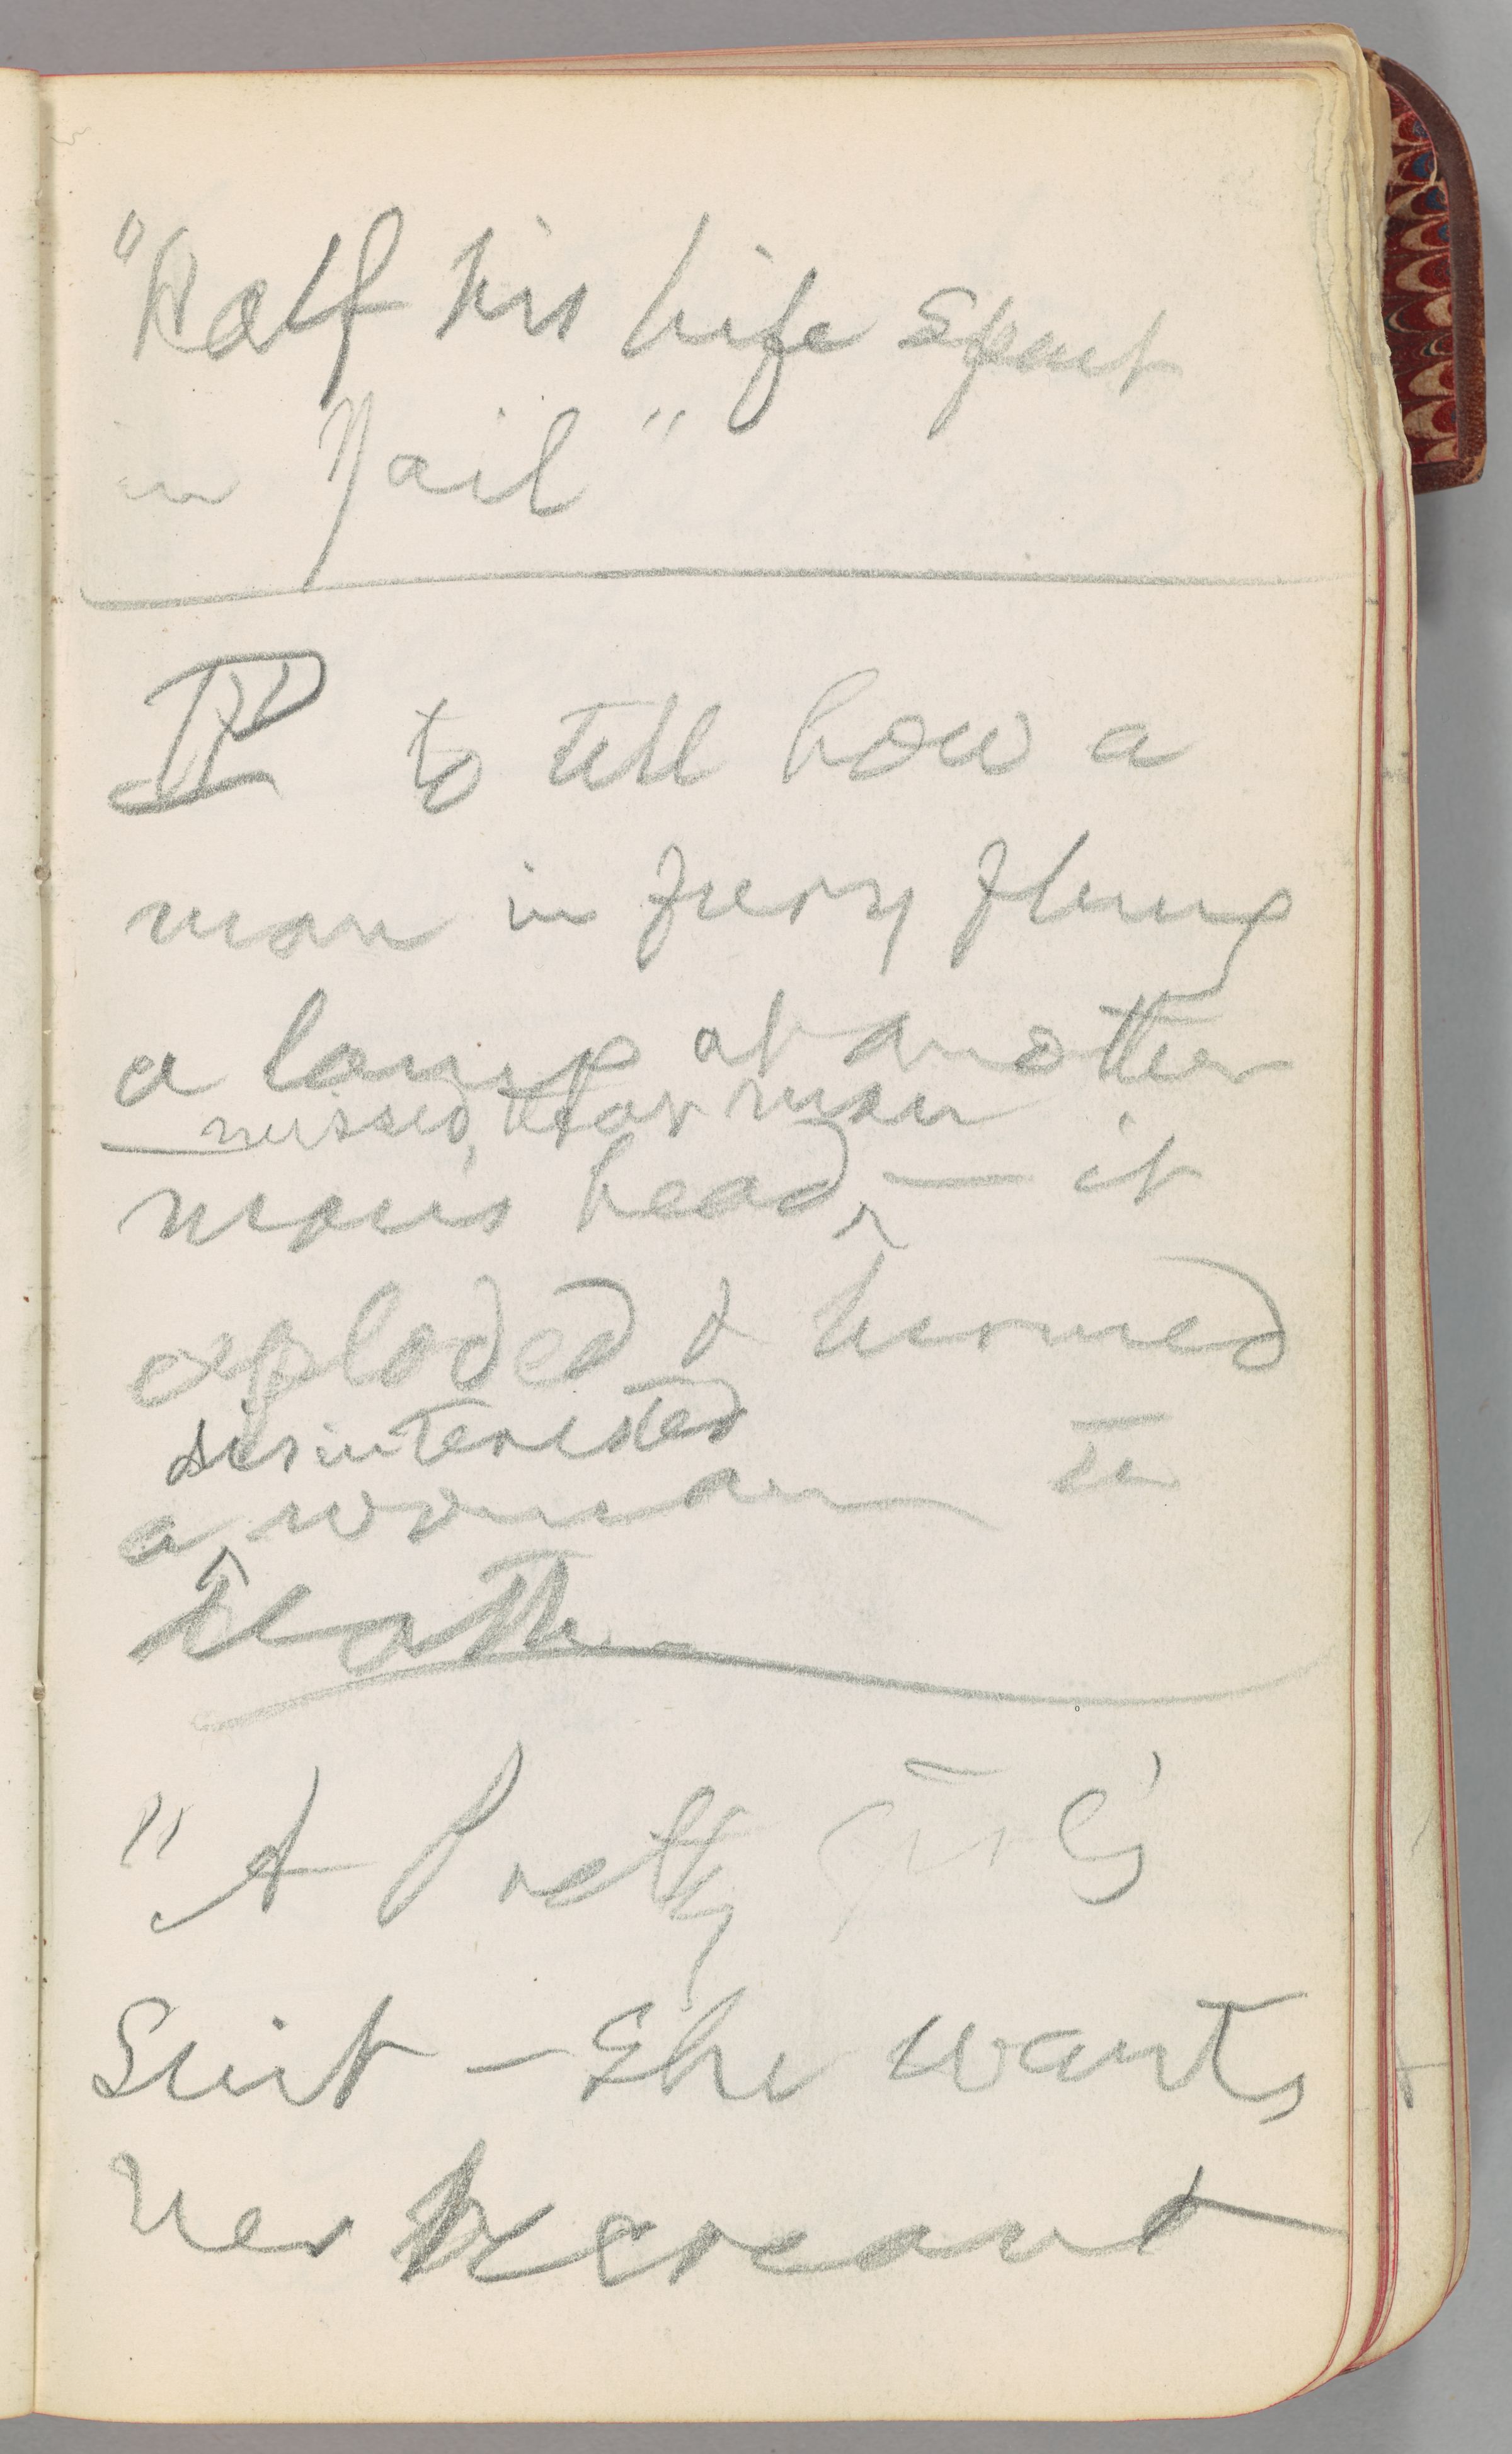 "Half his life spent
in Jail"
IV to tell how a
man in fury flung
a lamp at another
missed that man
man's head — it
exploded & burned
disinterested
a woman to
death
"A Pretty girl's
Suit – She wants
her recreant